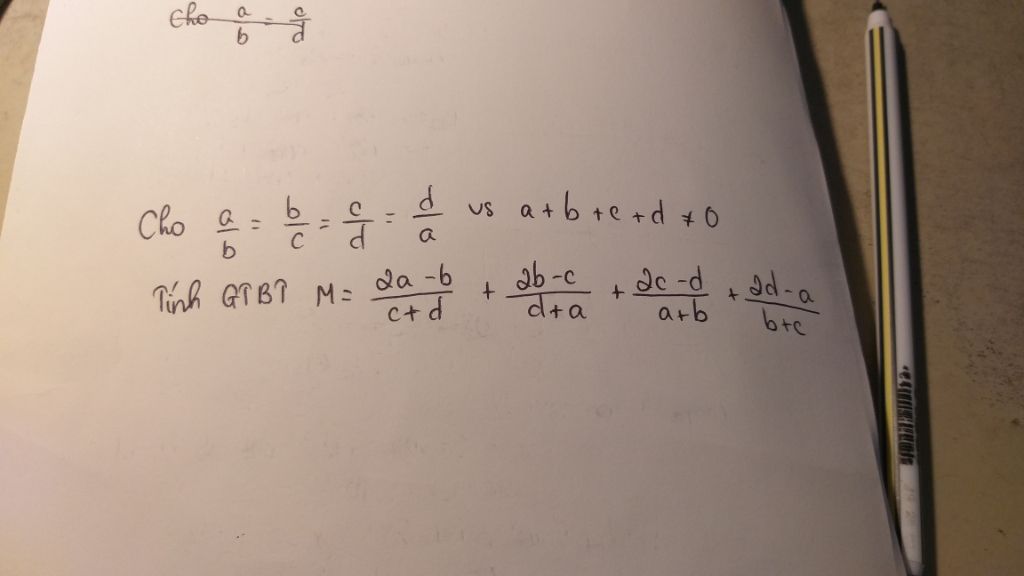 Cho a/b = c/d
Cho a/b = b/c = c/d = d/a vs a+b+c+d ≠ 0
Tính GTBT M = (2a-b)/(c+d) + (2b-c)/(d+a) + (2c-d)/(a+b) + (2d-a)/(b+c)